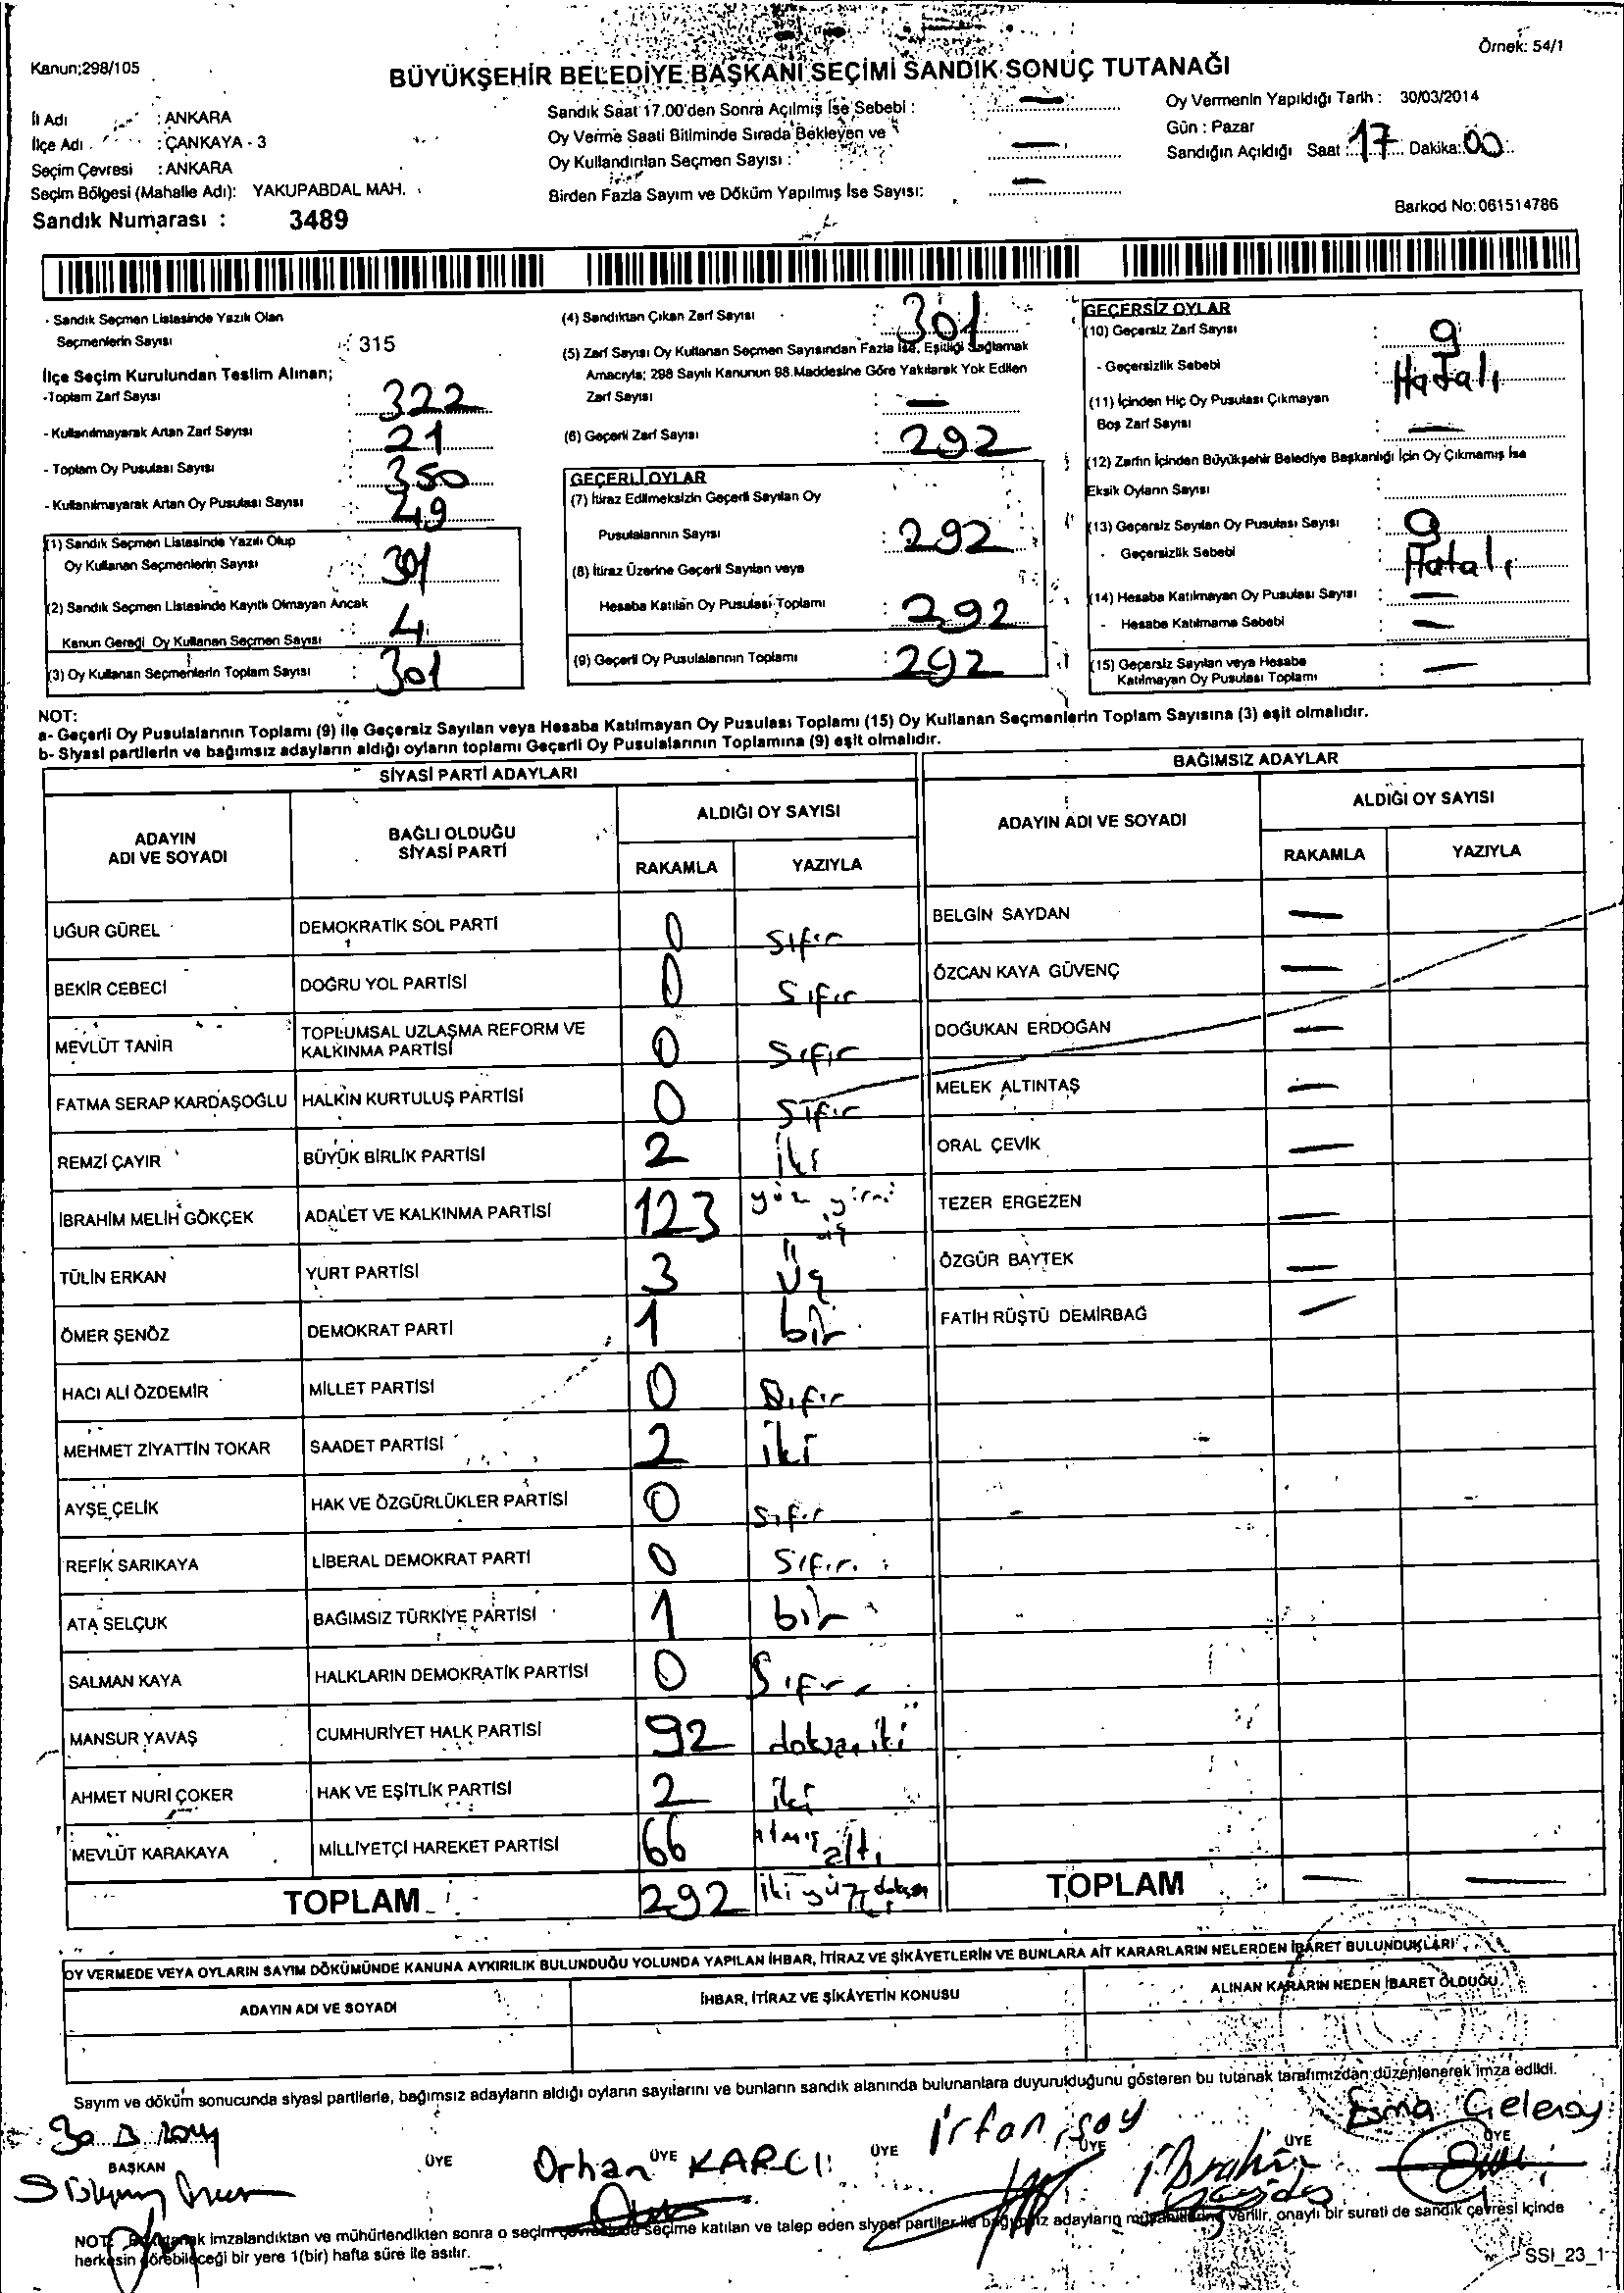 Kanun;298/105
Örnek: 54/1
BÜYÜKŞEHİR BELEDİYE BAŞKANI SEÇİMİ SANDIK SONUÇ TUTANAĞI
İl Adı : ANKARA
İlçe Adı : ÇANKAYA - 3
Seçim Çevresi : ANKARA
Seçim Bölgesi (Mahalle Adı): YAKUPABDAL MAH.
Sandık Numarası : 3489
Sandık Saat 17.00'den Sonra Açılmış İse Sebebi : —
Oy Verme Saati Bitiminde Sırada Bekleyen ve
Oy Kullandırılan Seçmen Sayısı : —
Birden Fazla Sayım ve Döküm Yapılmış İse Sayısı: —
Oy Vermenin Yapıldığı Tarih : 30/03/2014
Gün : Pazar
Sandığın Açıldığı Saat : 17 Dakika: 00
Barkod No: 061514786
- Sandık Seçmen Listesinde Yazılı Olan
Seçmenlerin Sayısı : 315
İlçe Seçim Kurulundan Teslim Alınan;
-Toplam Zarf Sayısı : 322
- Kullanılmayarak Artan Zarf Sayısı : 21
- Toplam Oy Pusulası Sayısı : 350
- Kullanılmayarak Artan Oy Pusulası Sayısı : 49
(1) Sandık Seçmen Listesinde Yazılı Olup
Oy Kullanan Seçmenlerin Sayısı : 301
(2) Sandık Seçmen Listesinde Kayıtlı Olmayan Ancak
Kanun Gereği Oy Kullanan Seçmen Sayısı : 4
(3) Oy Kullanan Seçmenlerin Toplam Sayısı : 301
(4) Sandıktan Çıkan Zarf Sayısı : 301
(5) Zarf Sayısı Oy Kullanan Seçmen Sayısından Fazla İse, Eşitliği Sağlamak
Amacıyla; 298 Sayılı Kanunun 98.Maddesine Göre Yakılarak Yok Edilen
Zarf Sayısı : —
(6) Geçerli Zarf Sayısı : 292
GEÇERLİ OYLAR
(7) İtiraz Edilmeksizin Geçerli Sayılan Oy
Pusulalarının Sayısı : 292
(8) İtiraz Üzerine Geçerli Sayılan veya
Hesaba Katılan Oy Pusulası Toplamı : 292
(9) Geçerli Oy Pusulalarının Toplamı : 292
GEÇERSİZ OYLAR
(10) Geçersiz Zarf Sayısı : 9
- Geçersizlik Sebebi : Hatalı
(11) İçinden Hiç Oy Pusulası Çıkmayan
Boş Zarf Sayısı : —
(12) Zarfın İçinden Büyükşehir Belediye Başkanlığı İçin Oy Çıkmamış İse
Eksik Oyların Sayısı :
(13) Geçersiz Sayılan Oy Pusulası Sayısı : 9
- Geçersizlik Sebebi : Hatalı
(14) Hesaba Katılmayan Oy Pusulası Sayısı : —
- Hesaba Katılmama Sebebi : —
(15) Geçersiz Sayılan veya Hesaba
Katılmayan Oy Pusulası Toplamı : —
NOT:
a- Geçerli Oy Pusulalarının Toplamı (9) ile Geçersiz Sayılan veya Hesaba Katılmayan Oy Pusulası Toplamı (15) Oy Kullanan Seçmenlerin Toplam Sayısına (3) eşit olmalıdır.
b- Siyasi partilerin ve bağımsız adayların aldığı oyların toplamı Geçerli Oy Pusulalarının Toplamına (9) eşit olmalıdır.
SİYASİ PARTİ ADAYLARI
ADAYIN ADI VE SOYADI
BAĞLI OLDUĞU SİYASİ PARTİ
ALDIĞI OY SAYISI
RAKAMLA YAZIYLA
UĞUR GÜREL DEMOKRATİK SOL PARTİ 0 Sıfır
BEKİR CEBECİ DOĞRU YOL PARTİSİ 0 Sıfır
MEVLÜT TANİR TOPLUMSAL UZLAŞMA REFORM VE KALKINMA PARTİSİ 0 Sıfır
FATMA SERAP KARDAŞOĞLU HALKIN KURTULUŞ PARTİSİ 0 Sıfır
REMZİ ÇAYIR BÜYÜK BİRLİK PARTİSİ 2 iki
İBRAHİM MELİH GÖKÇEK ADALET VE KALKINMA PARTİSİ 123 yüz yirmi üç
TÜLİN ERKAN YURT PARTİSİ 3 üç
ÖMER ŞENÖZ DEMOKRAT PARTİ 1 bir
HACI ALİ ÖZDEMİR MİLLET PARTİSİ 0 Sıfır
MEHMET ZİYATTİN TOKAR SAADET PARTİSİ 2 iki
AYŞE ÇELİK HAK VE ÖZGÜRLÜKLER PARTİSİ 0 Sıfır
REFİK SARIKAYA LİBERAL DEMOKRAT PARTİ 0 Sıfır
ATA SELÇUK BAĞIMSIZ TÜRKİYE PARTİSİ 1 bir
SALMAN KAYA HALKLARIN DEMOKRATİK PARTİSİ 0 Sıfır
MANSUR YAVAŞ CUMHURİYET HALK PARTİSİ 92 doksan iki
AHMET NURİ ÇOKER HAK VE EŞİTLİK PARTİSİ 2 iki
MEVLÜT KARAKAYA MİLLİYETÇİ HAREKET PARTİSİ 66 Atmış altı
TOPLAM 292 iki yüz doksan iki
BAĞIMSIZ ADAYLAR
ADAYIN ADI VE SOYADI
ALDIĞI OY SAYISI
RAKAMLA YAZIYLA
BELGİN SAYDAN —
ÖZCAN KAYA GÜVENÇ —
DOĞUKAN ERDOĞAN —
MELEK ALTINTAŞ —
ORAL ÇEVİK —
TEZER ERGEZEN —
ÖZGÜR BAYTEK —
FATİH RÜŞTÜ DEMİRBAĞ —
TOPLAM — —
OY VERMEDE VEYA OYLARIN SAYIM DÖKÜMÜNDE KANUNA AYKIRILIK BULUNDUĞU YOLUNDA YAPILAN İHBAR, İTİRAZ VE ŞİKÂYETLERİN VE BUNLARA AİT KARARLARIN NELERDEN İBARET BULUNDUKLARI
ADAYIN ADI VE SOYADI
İHBAR, İTİRAZ VE ŞİKÂYETİN KONUSU
ALINAN KARARIN NEDEN İBARET OLDUĞU
Sayım ve döküm sonucunda siyasi partilerle, bağımsız adayların aldığı oyların sayılarını ve bunların sandık alanında bulunanlara duyurulduğunu gösteren bu tutanak tarafımızdan düzenlenerek imza edildi.
BAŞKAN ÜYE ÜYE ÜYE ÜYE ÜYE ÜYE
Orhan KARCI
İrfan
İbrahim
Esma
NOT: Bu tutanak imzalandıktan ve mühürlendikten sonra o seçim çevresinde seçime katılan ve talep eden siyasi partiler ile bağımsız adayların müşahitlerine verilir, onaylı bir sureti de sandık çevresi içinde
herkesin görebileceği bir yere 1(bir) hafta süre ile asılır.
SSI_23_1